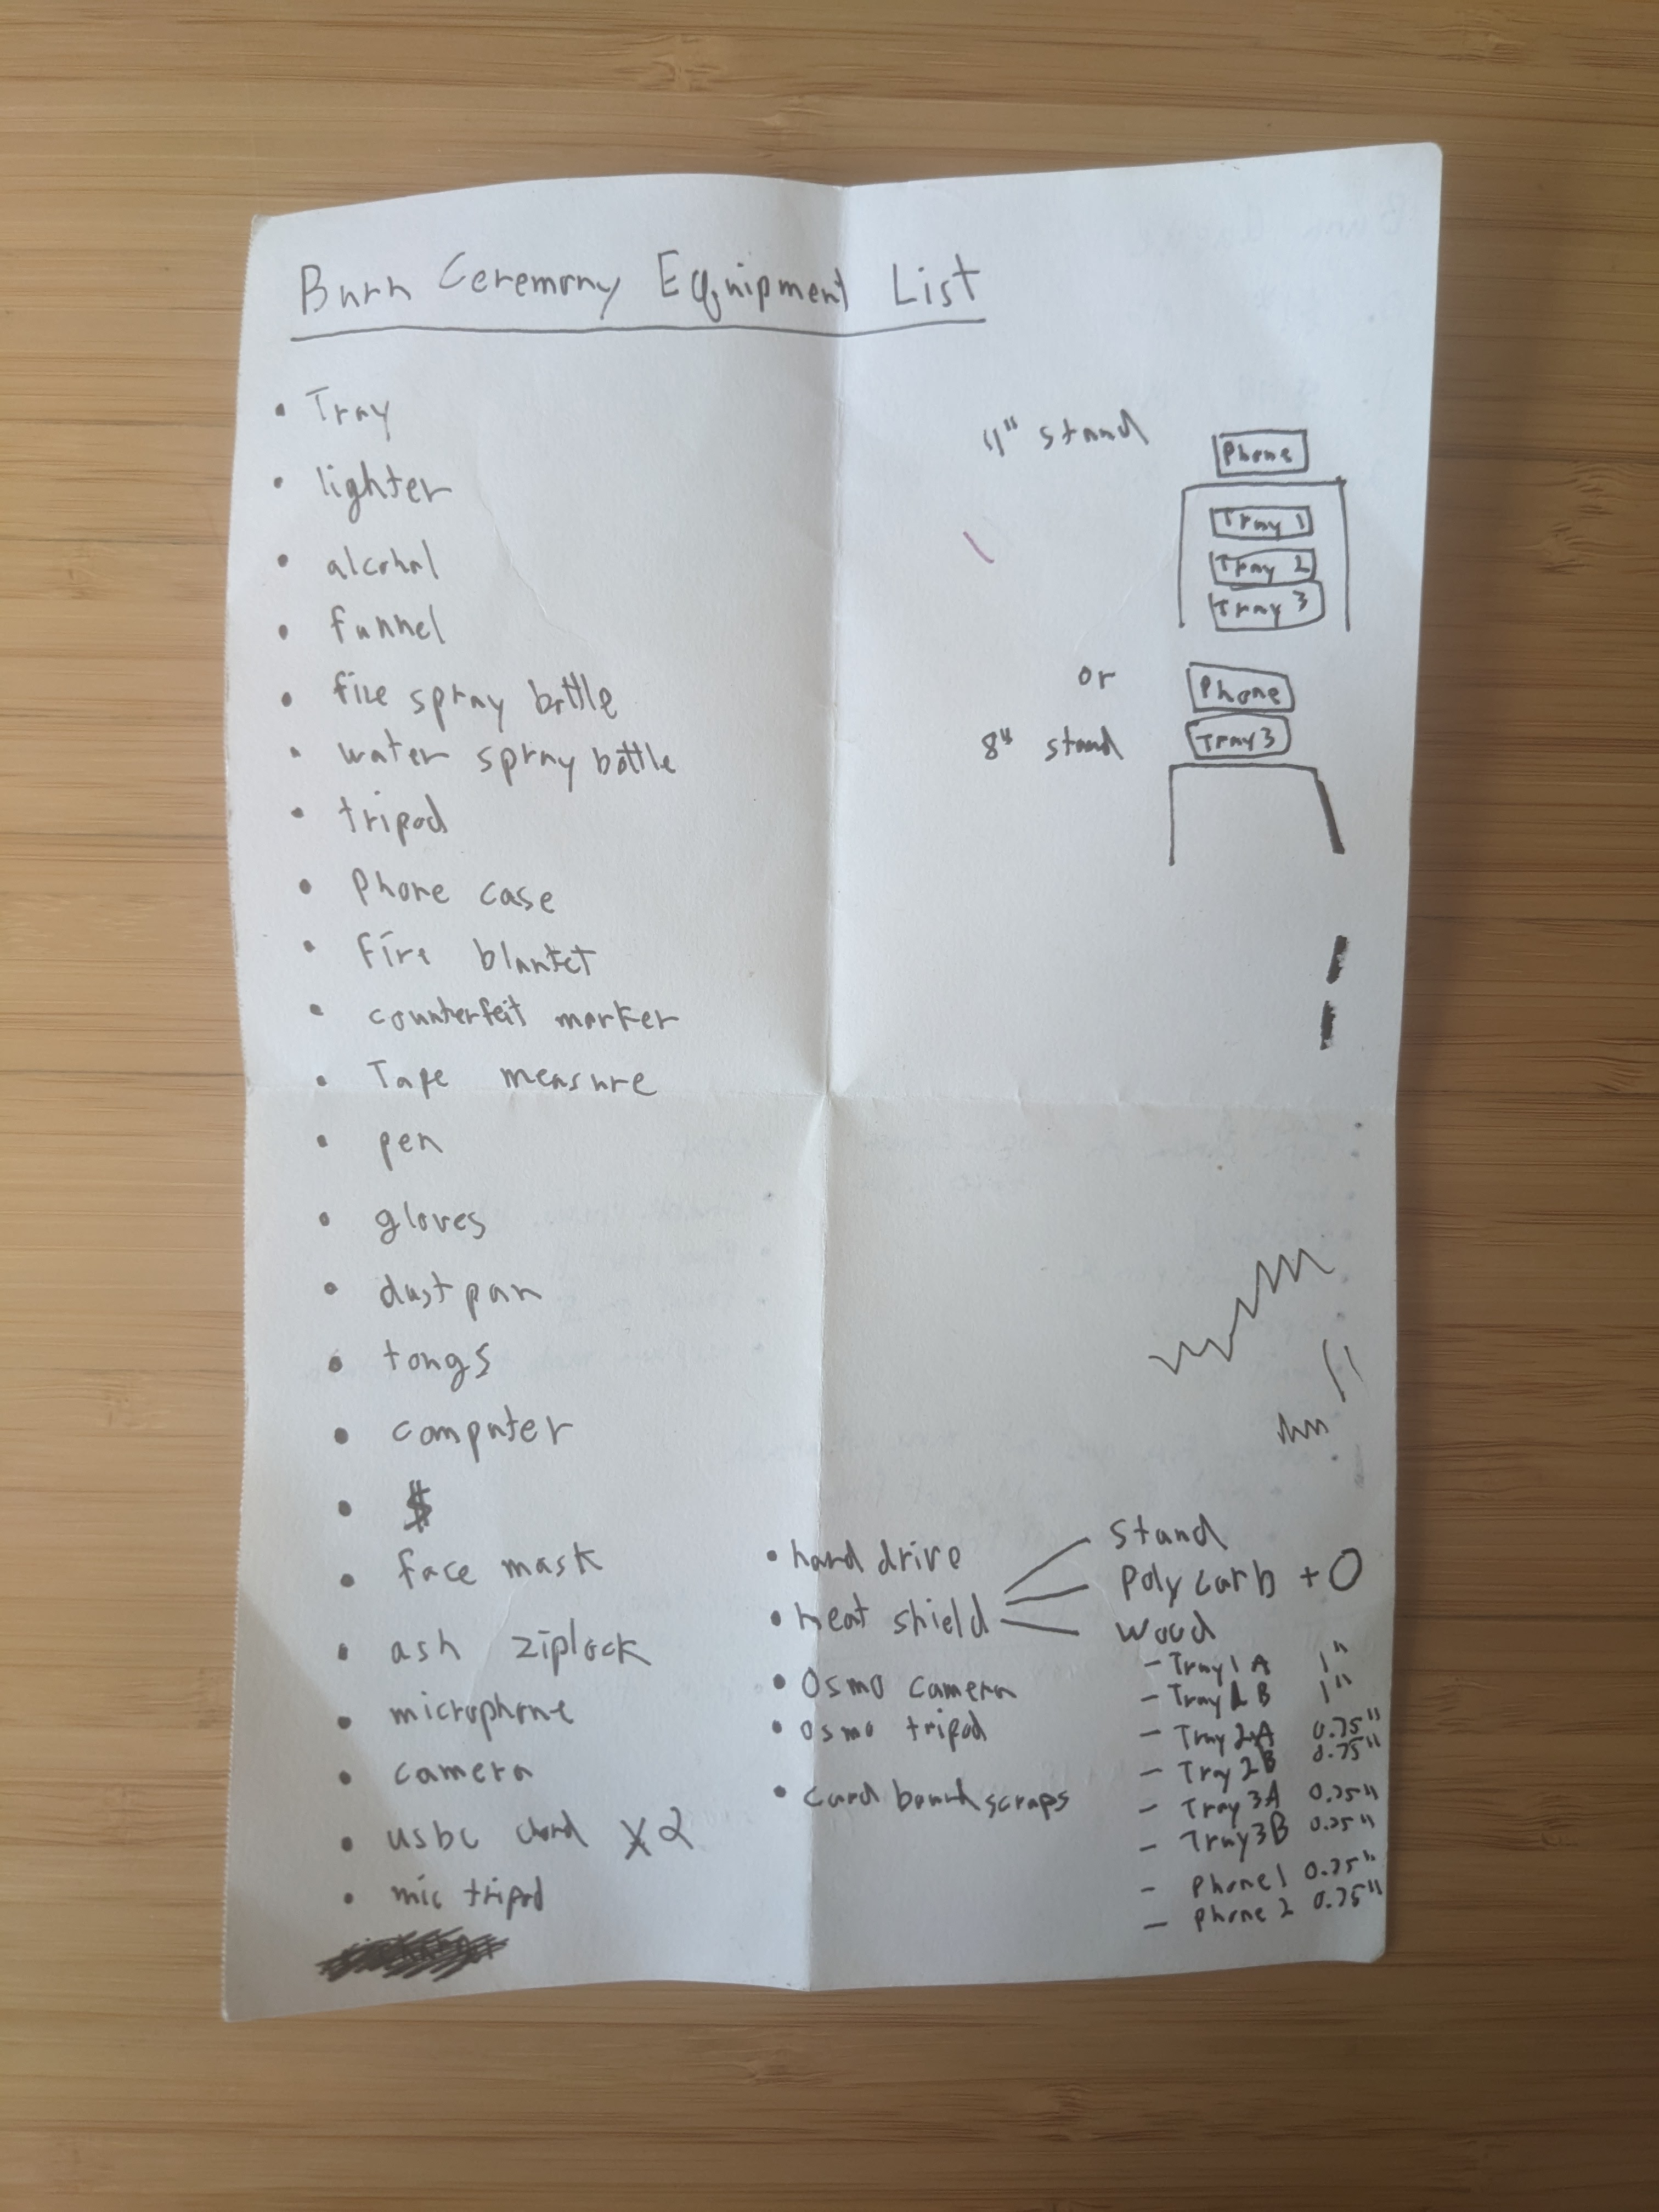 Burn Ceremony Equipment List
• Tray
• lighter
• alcohol
• funnel
• fire spray bottle
• water spray bottle
• tripod
• Phone case
• Fire blanket
• counterfeit marker
• Tape measure
• pen
• gloves
• dust pan
• tongs
• computer
• $
• face mask
• ash ziplock
• microphone
• camera
• usbc chord X2
• mic tripod
11" stand
Phone
Tray 1
Tray 2
Tray 3
or
8" stand
Phone
Tray 3
• hard drive
• heat shield
• Osmo camera
• osmo tripod
• card board scraps
stand
Poly carb + O
wood
- Tray 1 A 1"
- Tray 1 B 1"
- Tray 2 A 0.75"
- Tray 2 B 0.75"
- Tray 3A 0.25"
- Tray 3B 0.25"
- Phone 1 0.75"
- Phone 2 0.75"